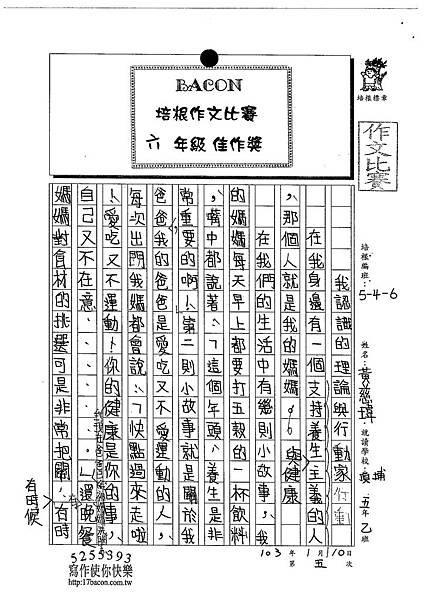 BACON
培根作文比賽
六 年級 佳作獎
培根標章
作文比賽
培根編班：5-4-6
姓名：黃慈瑋
就讀學校：埔 五年乙班
103年1月10日
第五次
我認識的理論與行動家
在我身邊有一個支持養生主義的人
，那個人就是我的媽媽。
在我們的生活中有幾則小故事，我
與健康
的媽媽每天早上都要打五穀的一杯飲料
，嘴中都說著：「這個年頭，養生是非
常重要的啊！」第二則小故事就是關於我
爸爸，我的爸爸是愛吃又不愛運動的人，
每次出門我媽都會說：「快點過來走啦
！愛吃又不運動！你的健康是你的事，
自己又不在意……。」還晚餐
媽媽對食材的挑選可是非常把關！有時
有時候
5255393
寫作使你快樂
http://17bacon.com.tw